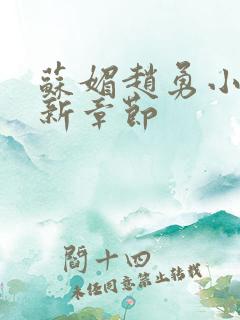 蘇媚趙勇小
新章節
閻十四
未任同意禁止转载